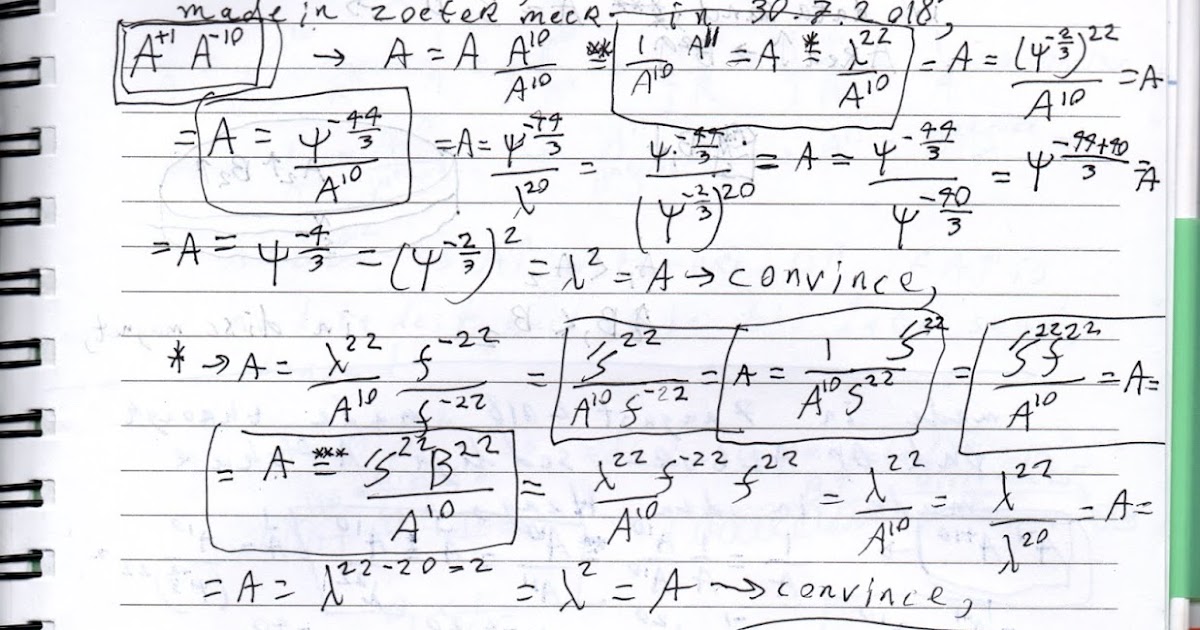 made in zoeter meer in 30.7.2018,
A⁺¹ A⁻¹⁰ → A = A A¹⁰/A¹⁰ **= 1/A¹⁰ A¹¹ = A *= λ²²/A¹⁰ = A = (ψ^(-2/3))²²/A¹⁰ = A
= A = ψ^(-44/3)/A¹⁰ = A = ψ^(-44/3)/λ²⁰ = ψ^(-44/3)/(ψ^(-2/3))²⁰ = A = ψ^(-44/3)/ψ^(-40/3) = ψ^(-44+40/3) = A
= A = ψ^(-4/3) = (ψ^(-2/3))² = λ² = A → convince,
* → A = λ²²/A¹⁰ f⁻²²/f⁻²² = S²²/A¹⁰ f⁻²² = A = 1/A¹⁰ S²²/S²² = S²² f²²/A¹⁰ = A =
= A ***= S²² B²²/A¹⁰ = λ²² f⁻²² f²²/A¹⁰ = λ²²/A¹⁰ = λ²²/λ²⁰ = A =
= A = λ²²⁻²⁰⁼² = λ² = A → convince,